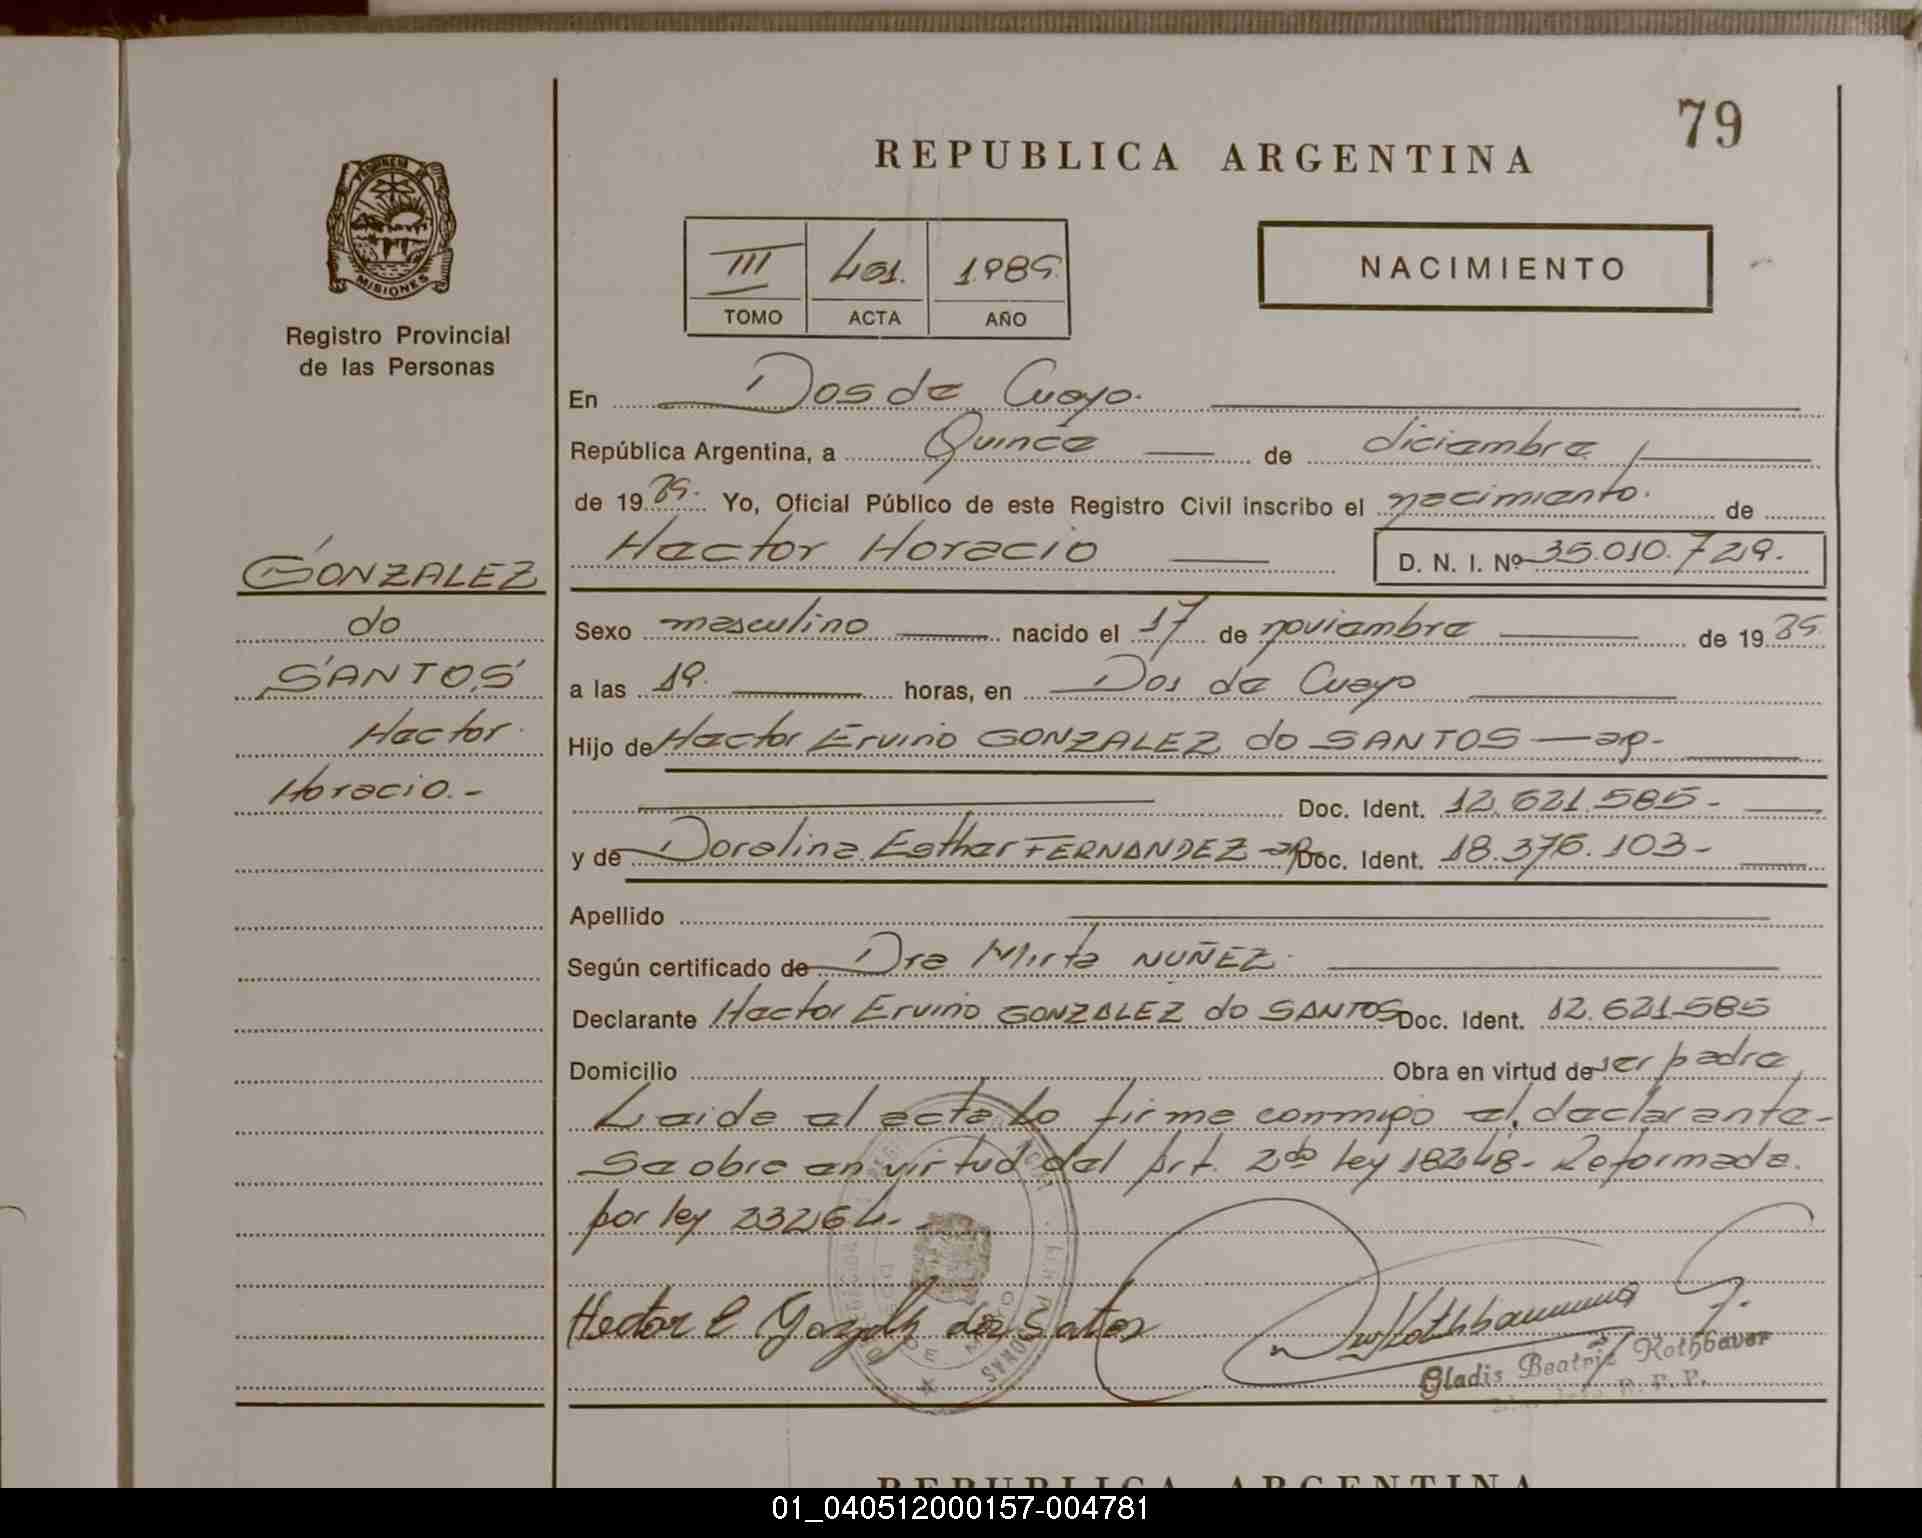 79
REPUBLICA ARGENTINA
PROVINCIA DE
MISIONES
Registro Provincial
de las Personas
III 401. 1989.
TOMO ACTA AÑO
NACIMIENTO
En Dos de Mayo.
República Argentina, a Quince de diciembre
de 1989. Yo, Oficial Público de este Registro Civil inscribo el nacimiento. de
Hector Horacio D. N. I. Nº 35.010.729.
GONZALEZ
do
SANTOS
Hector
Horacio.-
Sexo masculino nacido el 17 de noviembre de 1989.
a las 19. horas, en Dos de Mayo
Hijo de Hector Ervino GONZALEZ do SANTOS — ap-
Doc. Ident. 12.621.585-
y de Doralina Esther FERNANDEZ ap Doc. Ident. 18.376.103-
Apellido
Según certificado de Dra Mirta NUÑEZ.
Declarante Hector Ervino GONZALEZ do SANTOS Doc. Ident. 12.621585
Domicilio Obra en virtud de ser padre
Leide el acta lo firme conmigo el declarante-
Se obre en virtud del Art. 2do ley 18248- Reformada.
por ley 23264.-
Hector E Gonzalez dos Santos
Gladis Beatriz Rothbauer
R. P. P.
REPUBLICA ARGENTINA
01_040512000157-004781